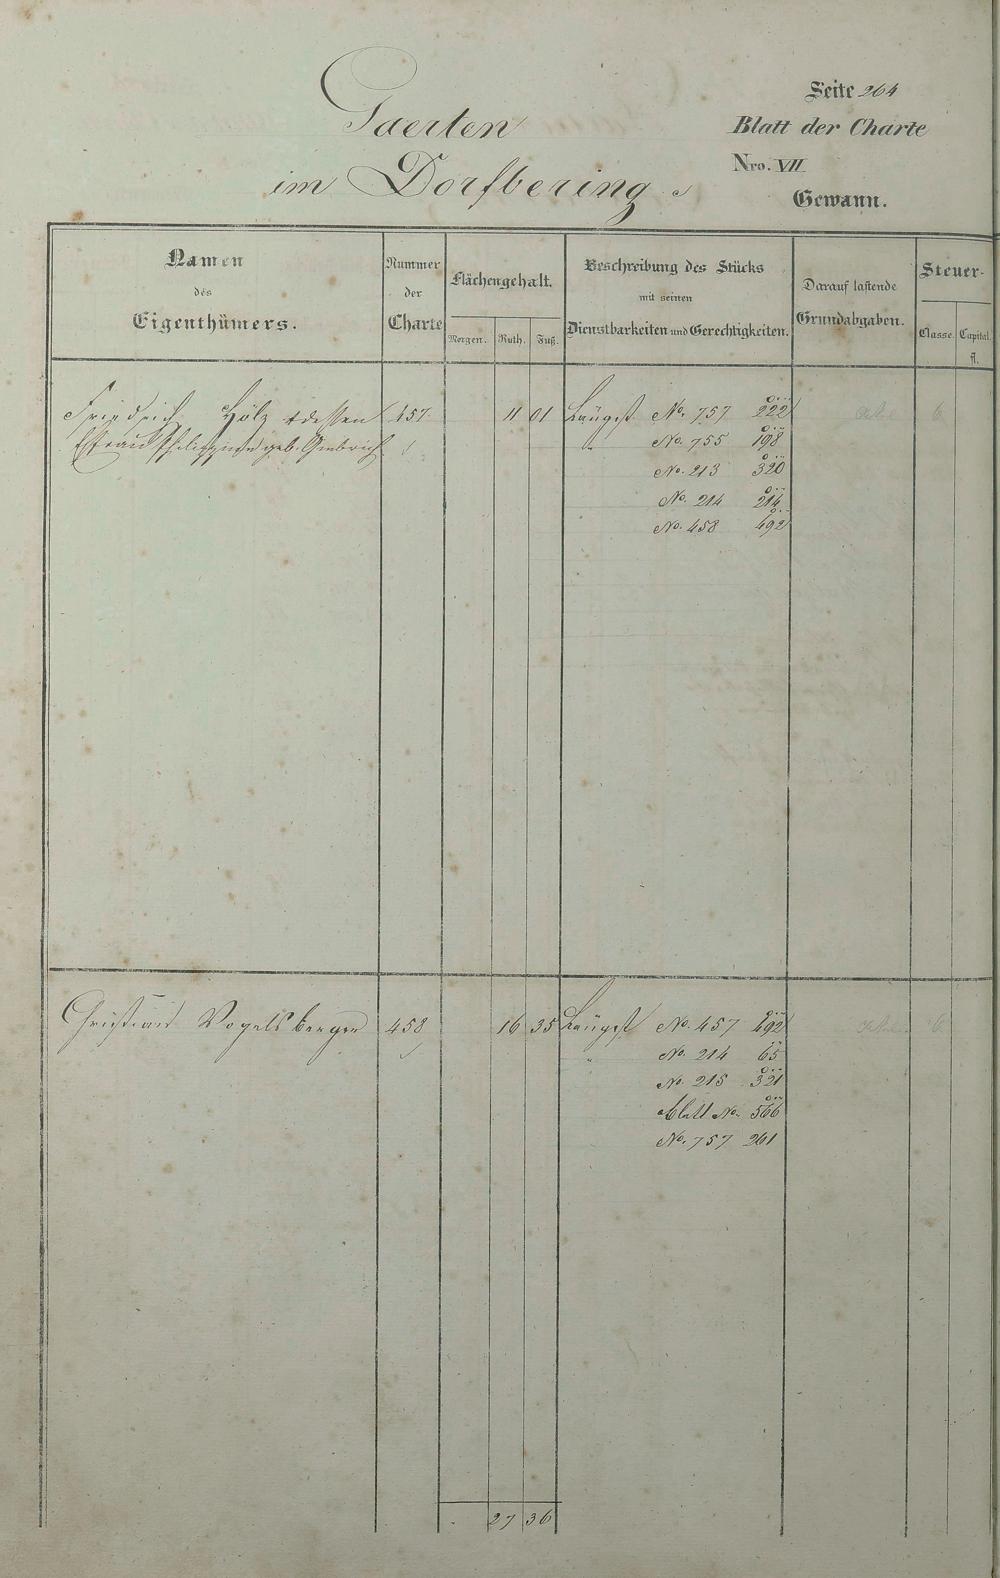 Gaerten
im Dorfbering.
Seite 264
Blatt der Charte
Nro. VII
Gewann.
Namen
des
Eigenthümers.
Nummer
der
Charte
Flächengehalt.
Morgen. Ruth. Fuß.
Beschreibung des Stücks
mit seinen
Dienstbarkeiten und Gerechtigkeiten.
Darauf lastende
Grundabgaben.
Steuer-
Classe. Capital.
fl.
Friedrich Hölz & dessen 457 11 01 Längst No. 757 222
Ehefrau Philippine geb. " No. 755 198
No. 213 320
No. 214 214
No. 458 492
Christian Vogelsberger 458 16 35 Längst No. 457 492
" No. 214 65
No. 215 321
No. 566
No. 757 261
27 36